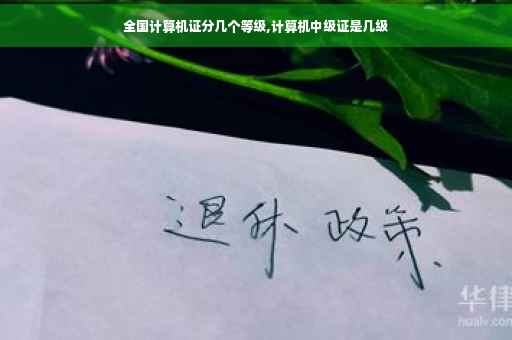 全国计算机证分几个等级,计算机中级证是几级
退休 政策
华律
hualv.com